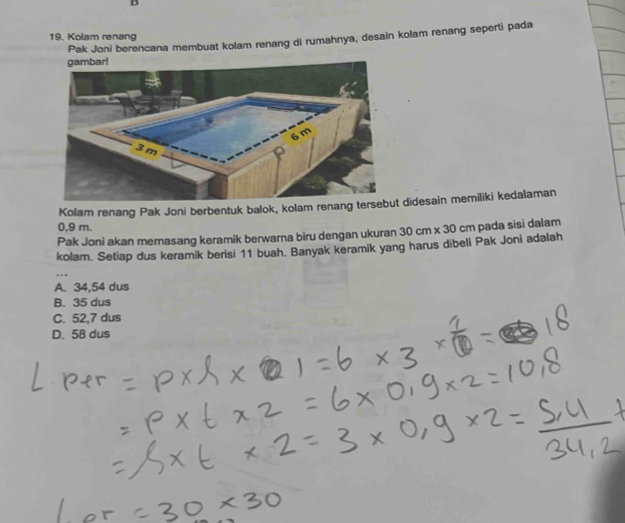 19. Kolam renang
Pak Joni berencana membuat kolam renang di rumahnya, desain kolam renang seperti pada
gambar!
3 m
6 m
Kolam renang Pak Joni berbentuk balok, kolam renang tersebut didesain memiliki kedalaman
0,9 m.
Pak Joni akan memasang keramik berwarna biru dengan ukuran 30 cm x 30 cm pada sisi dalam
kolam. Setiap dus keramik berisi 11 buah. Banyak keramik yang harus dibeli Pak Joni adalah
...
A. 34,54 dus
B. 35 dus
C. 52,7 dus
D. 58 dus
L per = p x l x 1 = 6 x 3 x 1 = 18
= p x t x 2 = 6 x 0,9 x 2 = 10,8
= l x t x 2 = 3 x 0,9 x 2 = 5,4 +
34,2
= 30 x 30